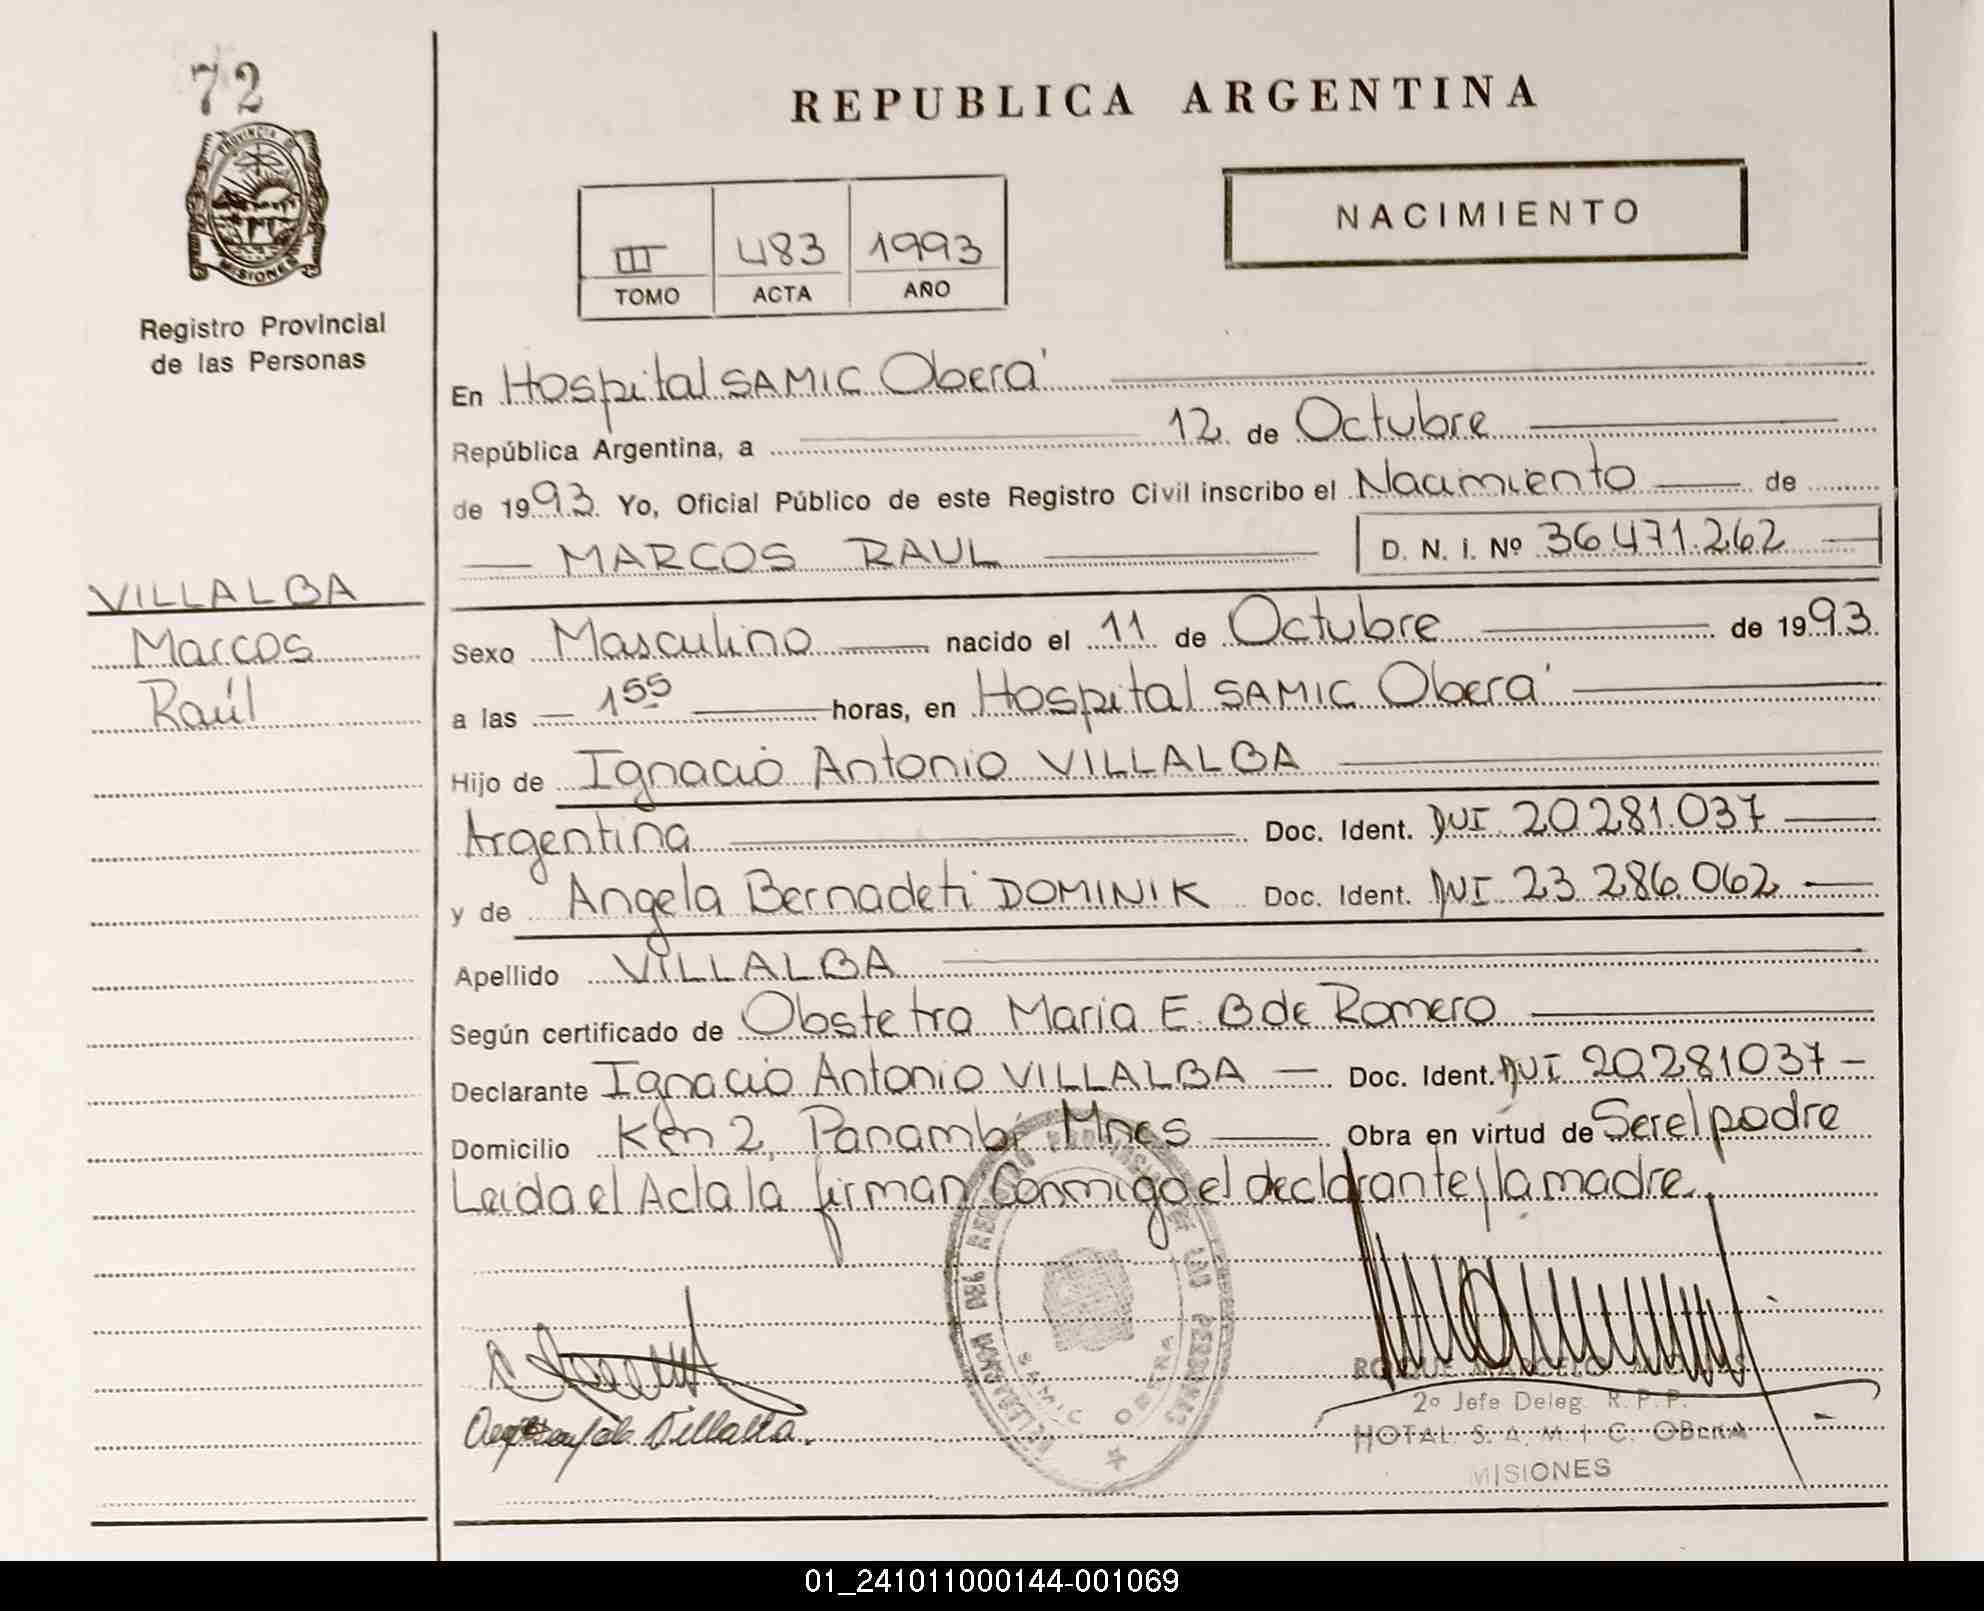 72
PROVINCIA DE
MISIONES
Registro Provincial
de las Personas
VILLALBA
Marcos
Raúl
REPUBLICA ARGENTINA
NACIMIENTO
III 483 1993
TOMO ACTA AÑO
En Hospital SAMIC Oberá
República Argentina, a 12 de Octubre
de 1993. Yo, Oficial Público de este Registro Civil inscribo el Nacimiento de
MARCOS RAUL D. N. I. Nº 36.471.262
Sexo Masculino nacido el 11 de Octubre de 1993
a las 1 55 horas, en Hospital SAMIC Oberá
Hijo de Ignacio Antonio VILLALBA
Argentina Doc. Ident. DNI 20.281.037
y de Angela Bernadeti DOMINIK Doc. Ident. DNI 23.286.062
Apellido VILLALBA
Según certificado de Obstetra Maria E. B de Romero
Declarante Ignacio Antonio VILLALBA Doc. Ident. DNI 20.281037
Domicilio Km 2, Panambí Mnes Obra en virtud de Ser el padre
Leida el Acta la firman Conmigo el declarante y la madre.
DELEGACION DEL REGISTRO PROVINCIAL DE LAS PERSONAS
SAMIC OBERA
Villalba.
ROQUE MARCELO
2º Jefe Deleg. R. P. P.
HOTAL S. A. M. I. C. OBERA
MISIONES
01_241011000144-001069